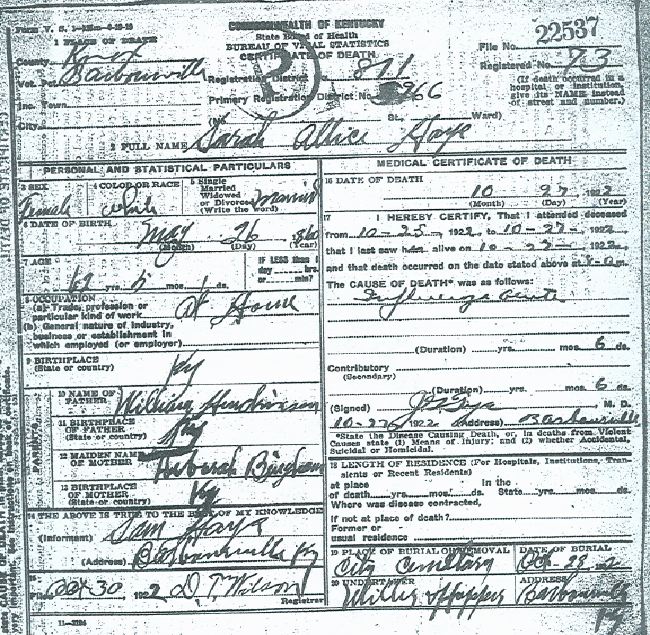 Form V. S.
COMMONWEALTH OF KENTUCKY
State Board of Health
BUREAU OF VITAL STATISTICS
CERTIFICATE OF DEATH
File No. 22537
1 PLACE OF DEATH
County Knox
Registered No. 73
Vot. Pct. Barbourville
Registration District No. 871
(If death occurred in a hospital or institution, give its NAME instead of street and number.)
Inc. Town
Primary Registration District No.
City (No. St., Ward)
2 FULL NAME Sarah Allice Haye
PERSONAL AND STATISTICAL PARTICULARS
3 SEX Female
4 COLOR OR RACE white
5 Single Married Widowed or Divorced (Write the word) Married
6 DATE OF BIRTH
May 26
(Month) (Day) (Year)
7 AGE
62 yrs. 5 mos. 1 ds.
IF LESS than 1 day hrs. or min?
8 OCCUPATION
(a) Trade, profession or particular kind of work At Home
(b) General nature of industry, business or establishment in which employed (or employer)
9 BIRTHPLACE
(State or country) Ky
PARENTS
10 NAME OF FATHER
11 BIRTHPLACE OF FATHER
(State or country) Ky
12 MAIDEN NAME OF MOTHER Bingham
13 BIRTHPLACE OF MOTHER
(State or country) Ky
14 THE ABOVE IS TRUE TO THE BEST OF MY KNOWLEDGE
(Informant) Sam Haye
(Address) Barbourville Ky
15
Filed Oct 30 1922 D T Wilson
Registrar
11-3184
MEDICAL CERTIFICATE OF DEATH
16 DATE OF DEATH
10 27 1922
(Month) (Day) (Year)
17 I HEREBY CERTIFY, That I attended deceased
from 10-25- 1922 to 10-27- 1922
that I last saw alive on 10-27- 1922
and that death occurred on the date stated above at
The CAUSE OF DEATH* was as follows:
Influenza
(Duration) yrs. mos. 6 ds.
Contributory
(Secondary)
(Duration) yrs. mos. 6 ds.
(Signed) M. D.
1922 (Address) Barbourville
*State the Disease Causing Death, or, in deaths from Violent Causes state (1) Means of Injury; and (2) whether Accidental, Suicidal or Homicidal.
18 LENGTH OF RESIDENCE (For Hospitals, Institutions, Transients or Recent Residents)
at place of death yrs. mos. ds. In the State yrs. mos. ds.
Where was disease contracted,
if not at place of death?
Former or
usual residence
19 PLACE OF BURIAL OR REMOVAL
City Cemetary
DATE OF BURIAL
20 UNDERTAKER
ADDRESS
Barbourville
Ky